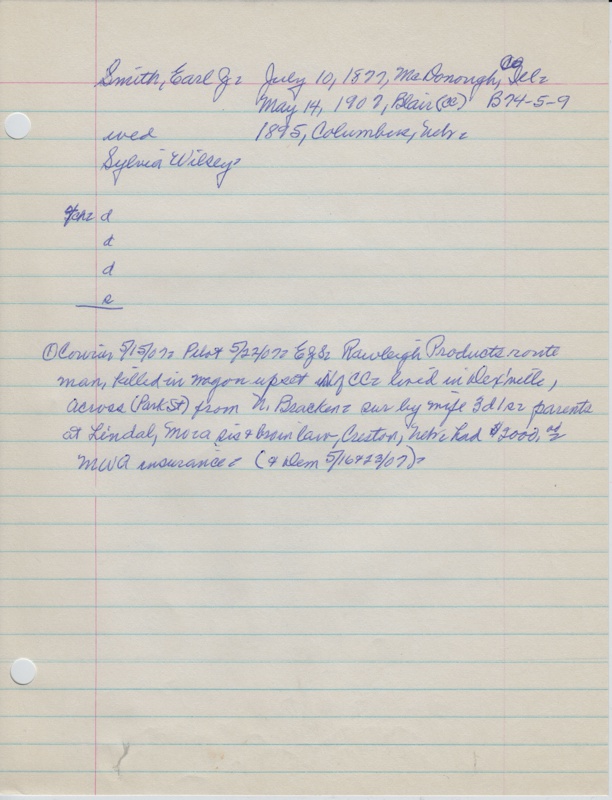 Smith, Earl J. July 10, 1877, McDonough, Co Ill.
May 14, 1907, Blair (CC) B74-5-9
wed 1895, Columbus, Nebr.
Sylvia Wilsey.
4chn: d
d
d
s
① Courier 5/15/07. Pilot 5/22/07. EJS. Rawleigh Products route
man, killed in wagon upset of CC. lived in
across (Park St) from N. Bracken. sur by wife 3d1s. parents
at Lindal, sis & bro in law, Creston, Nebr. had $2000.
MWA insurance. (& Dem 5/16&23/07).